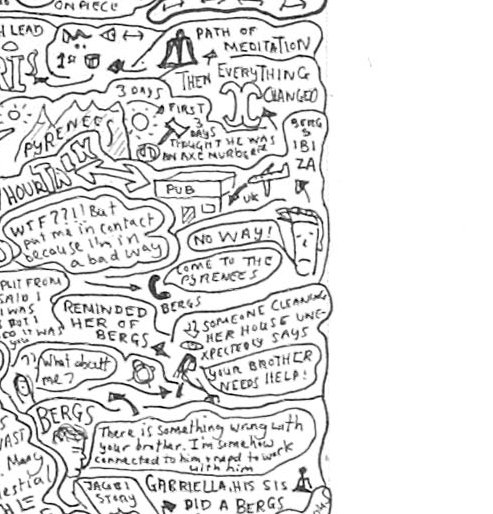 ON PIECE
LEAD
1st
PATH OF
MEDITATION
THEN EVERYTHING
CHANGED
3 DAYS
FIRST
3
DAYS
THOUGHT HE WAS
AN AXE MURDERER
PYRENEES
BERG
S
IBI
ZA
HOUR TAXI
PUB
UK
WTF??!! But
put me in contact
because I'm in
a bad way
NO WAY!
COME TO THE
PYRENEES
BERGS
SPLIT FROM
SAID I
I WAS
BUT I
IT WAS
REMINDED
HER OF
BERGS
SOMEONE CLEANING
HER HOUSE UNE-
XPECTEDLY SAYS
YOUR BROTHER
NEEDS HELP!
What about
me?
BERGS
There is something wrong with
your brother. I'm somehow
connected to him & need to work
with him
VAST
Many
JACOBI
STORY
GABRIELLA, HIS SIS
DID A BERGS